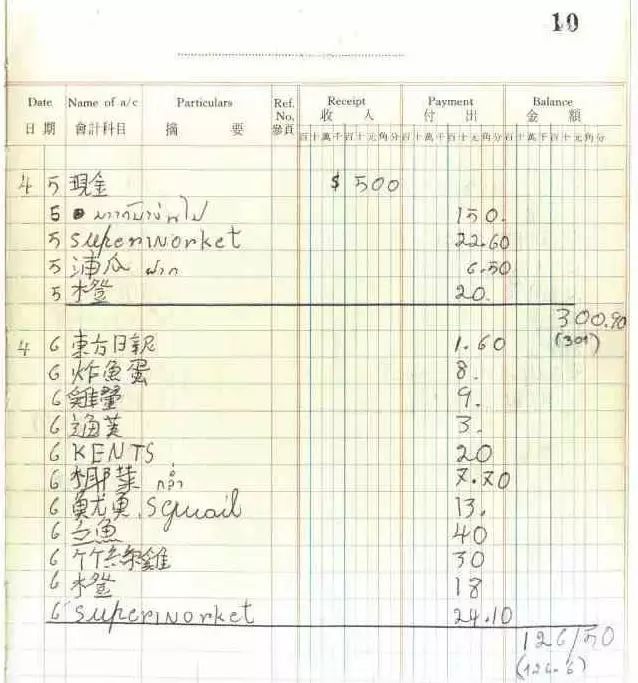 10
Date Name of a/c Particulars Ref. No. Receipt Payment Balance
日期 會計科目 摘要 參頁 收入 付出 金額
百十萬千百十元角分 百十萬千百十元角分 百十萬千百十元角分
4 5 現金 $ 500
5 150.
5 Supermorket 22.60
5 浦瓜 ฝาก 6.50
5 橙 20.
300.90
(301)
4 6 東方日報 1.60
6 炸魚蛋 8.
6 雞蛋 9.
6 通菜 3.
6 KENTS 20
6 椰菜 7.70
6 魷魚, Squail 13.
6 立魚 40
6 竹絲雞 30
6 橙 18
6 Supermorket 24.10
126/50
(126.6)